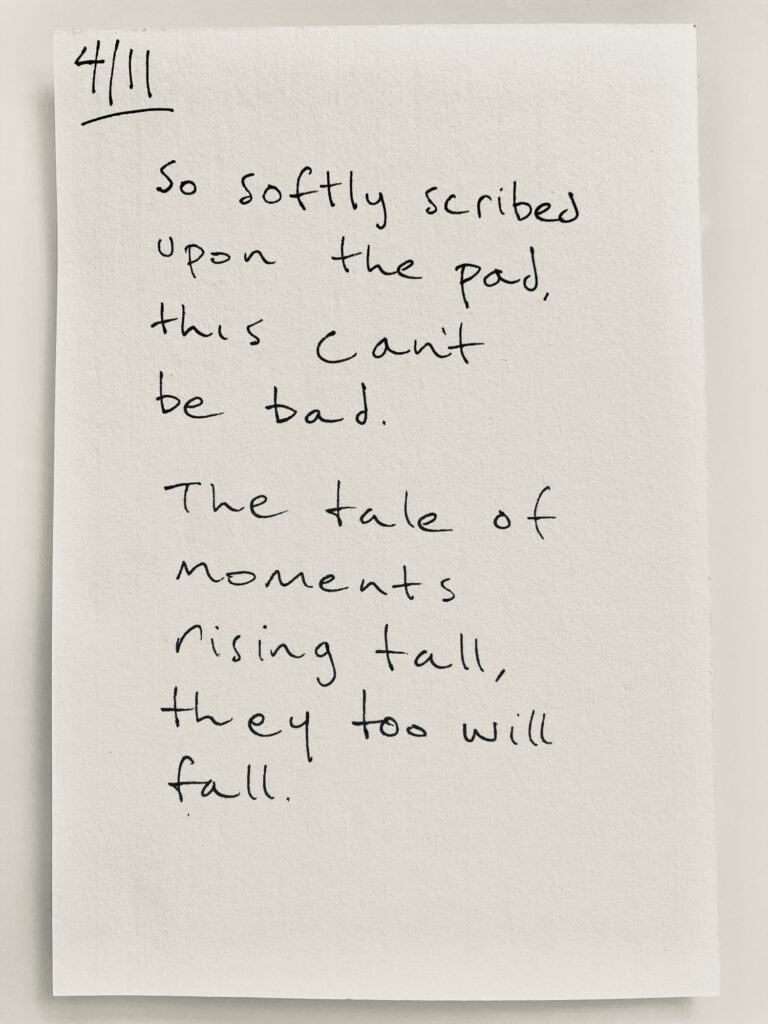 4/11
So softly scribed
upon the pad,
this can't
be bad.
The tale of
moments
rising tall,
they too will
fall.